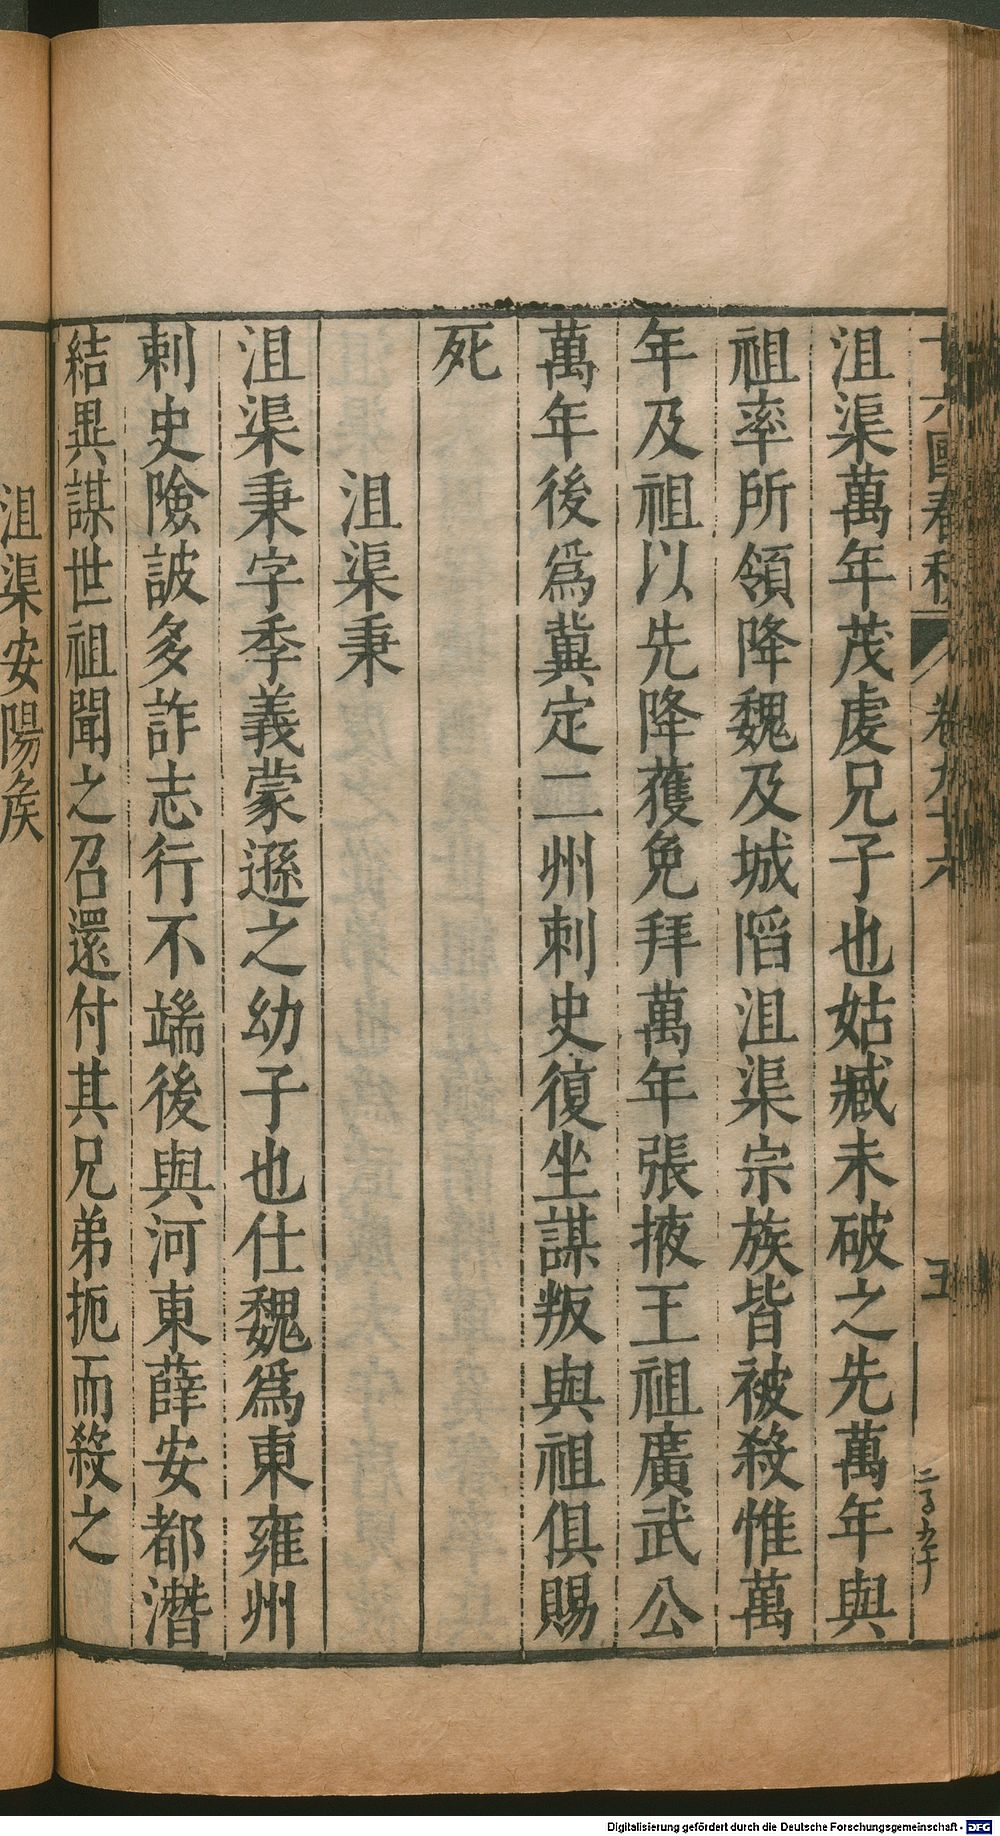 十六國春秋 卷九十六 五
沮渠萬年茂虔兄子也姑臧未破之先萬年與
祖率所領降魏及城陷沮渠宗族皆被殺惟萬
年及祖以先降獲免拜萬年張掖王祖廣武公
萬年後爲冀定二州刺史復坐謀叛與祖俱賜
死
沮渠秉
沮渠秉字季義蒙遜之幼子也仕魏爲東雍州
刺史險詖多詐志行不端後與河東薛安都潛
結異謀世祖聞之召還付其兄弟扼而殺之
沮渠安陽矦
Digitalisierung gefördert durch die Deutsche Forschungsgemeinschaft - DFG